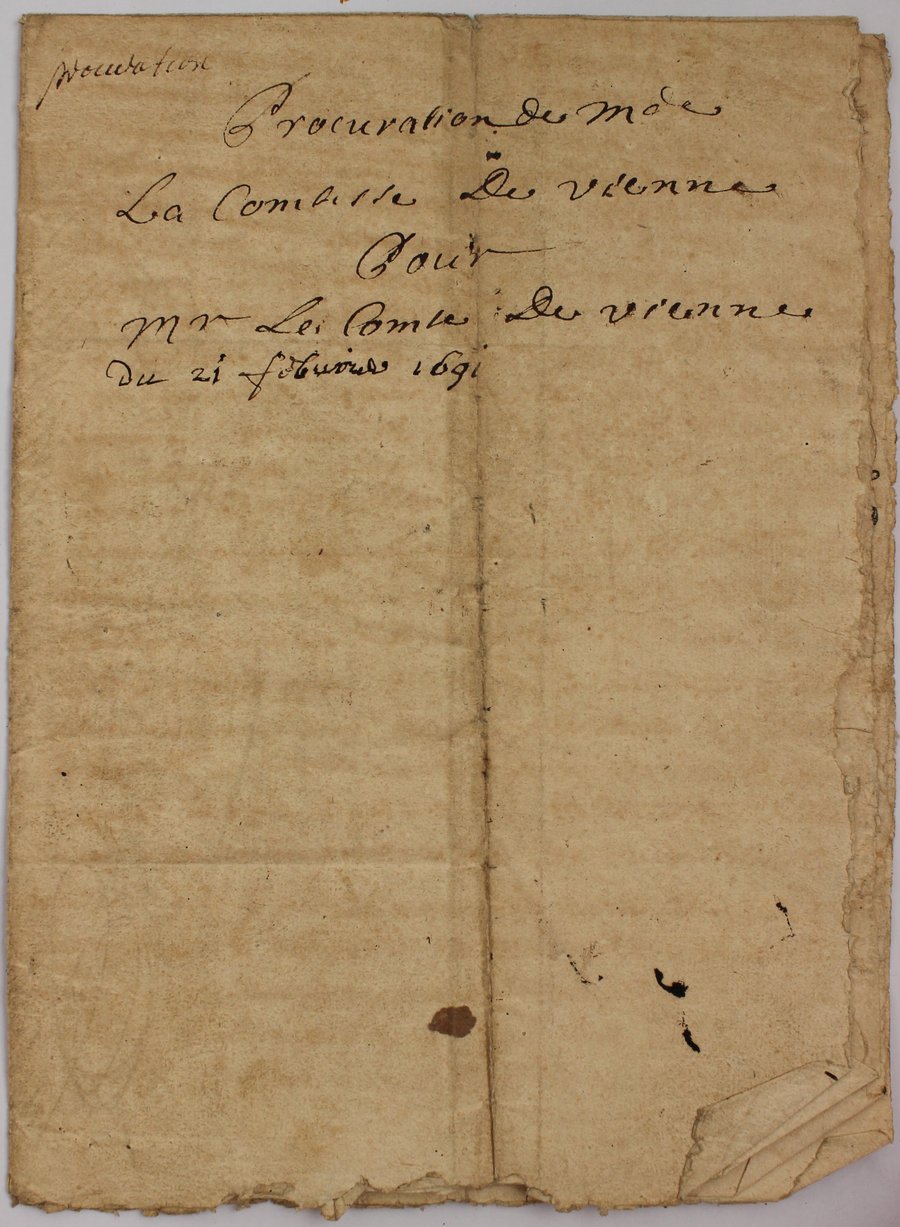 procuration
Procuration de mde
La Comtesse De vienne
Pour
mr Le Comte De vienne
Du 21 febvrier 1691